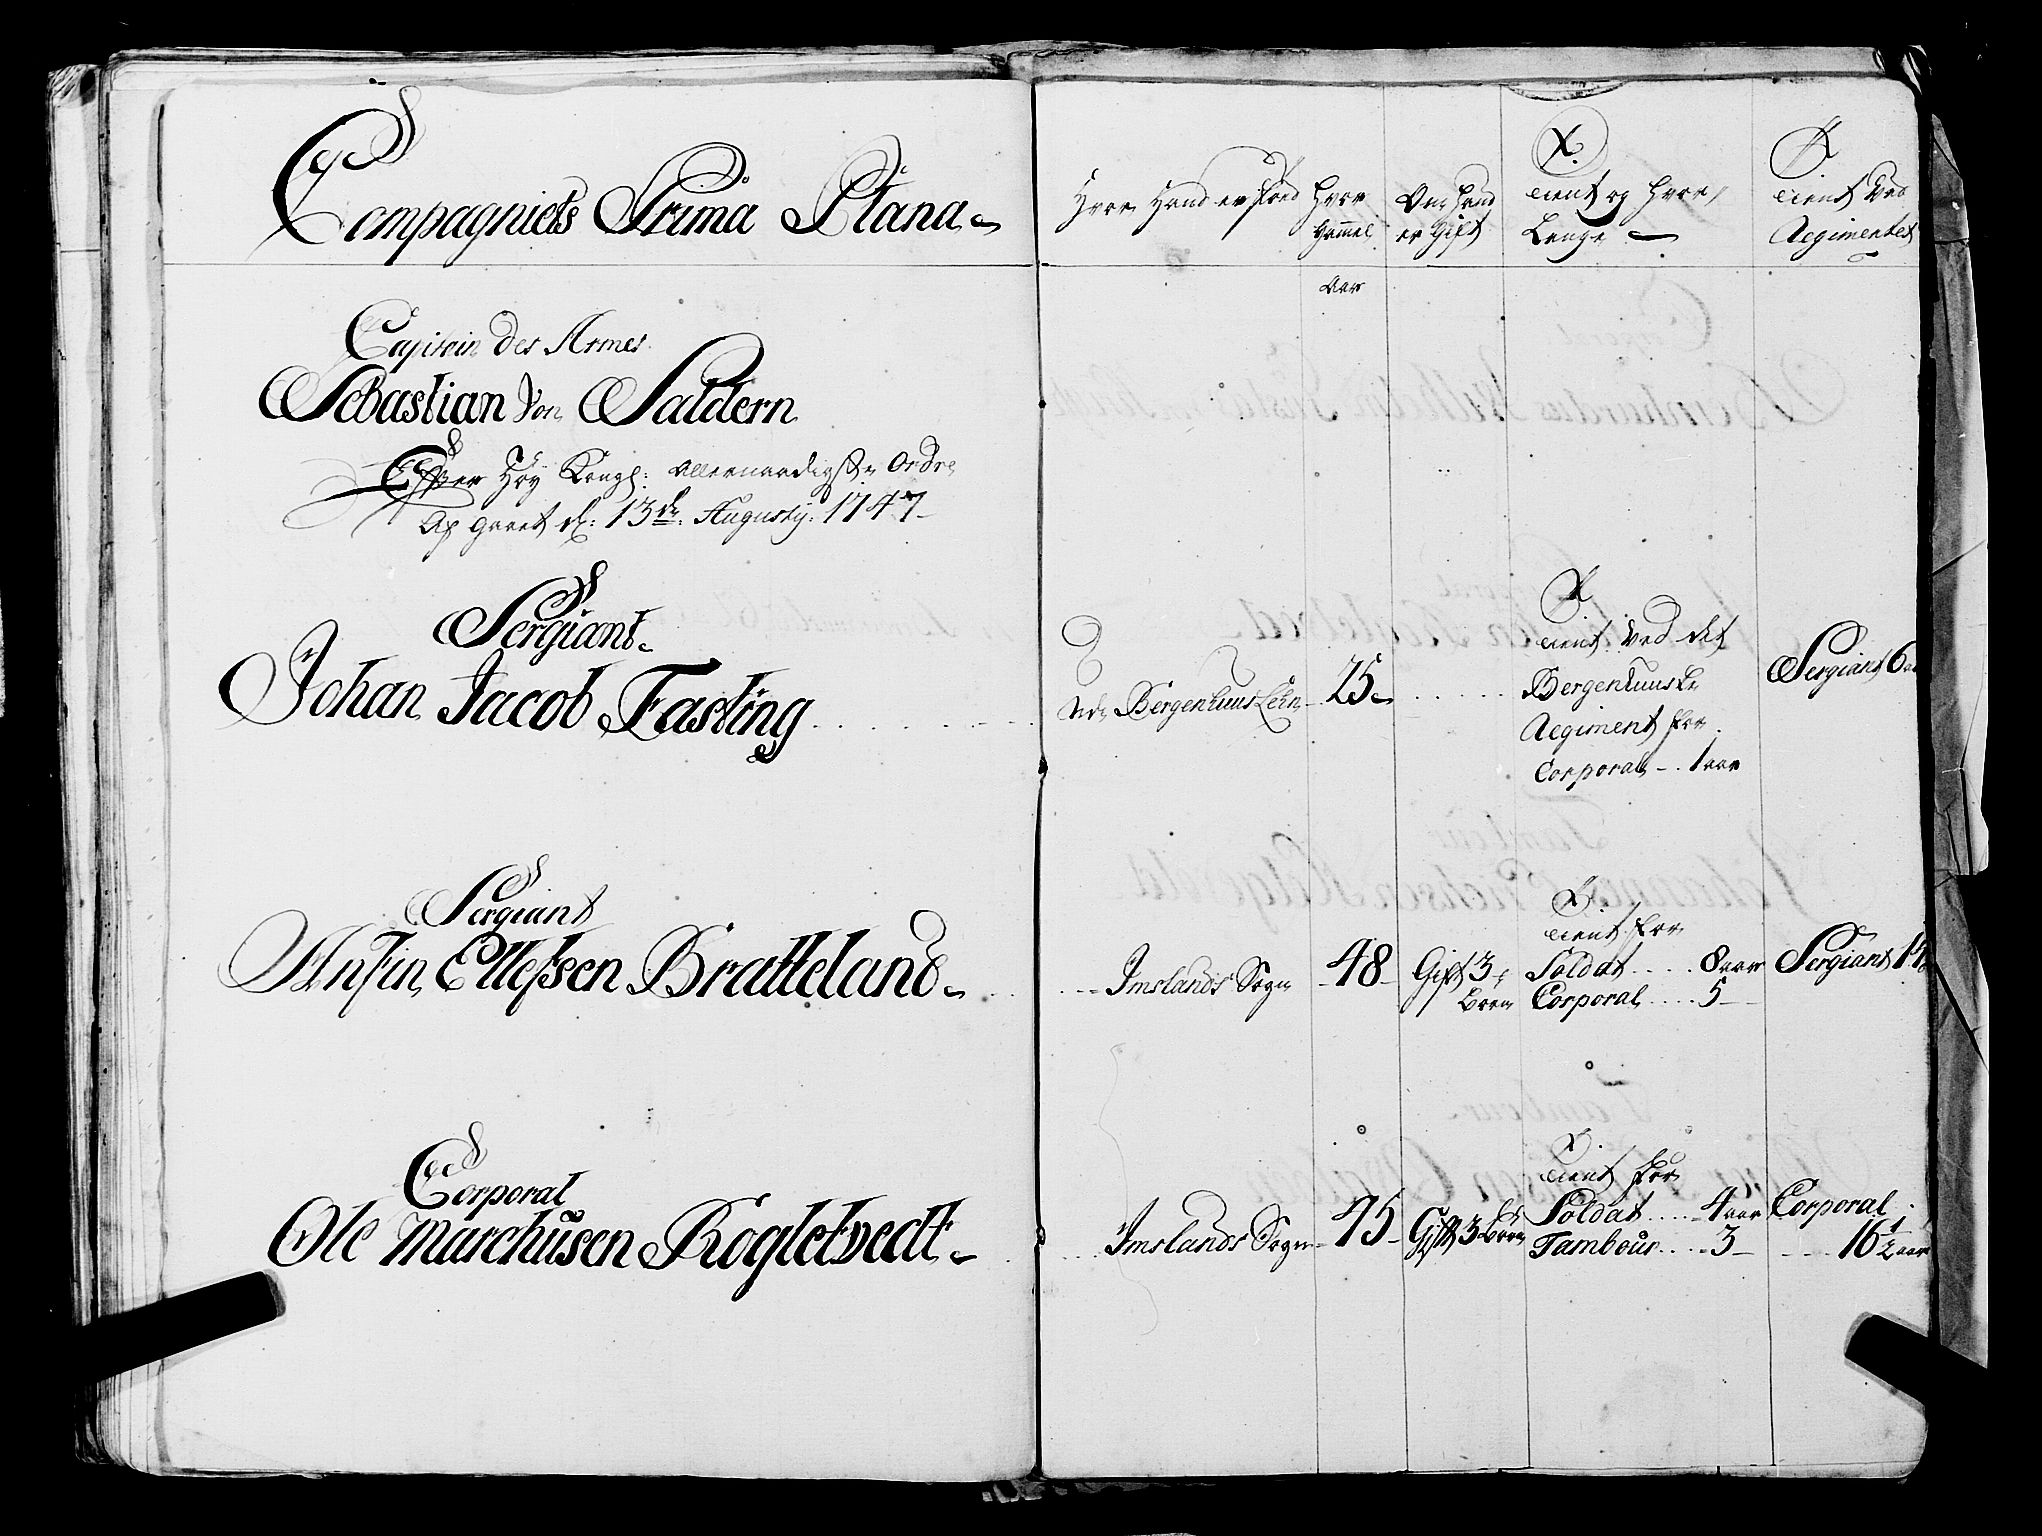 Compagniets Prima Plana
Hvor Hand er föed
Hvor
Gammel
Om hand
er Gift
Tient og Hvor
Lenge
Tient Ved
Regimentet
Aar
Capitain Des Armes
Sebastian Von Saldern
Efter Höy Kongl: Allernaadigste Ordre
Af gaaet d: 13de Augusty: 1747
Sergiant
Johan Jacob Fasting
Udi Bergenhuus Lehn
25
Tient Ved det
Bergenhuuske
Regiment for
Corporal 1 aar
Sergiant 6
Sergiant
Anfin Ellefsen Bratteland
Imslands Sogn
48
Gift 3
Börn
Tient for
Soldat 8 aar
Corporal 5
Sergiant
Corporal
Ole Marchusen Rögletvedt
Imslands Sogn
45
Gift 3 Börn
Tient for
Soldat 4 aar
Tambour 3
Corporal
16 1/2 aar